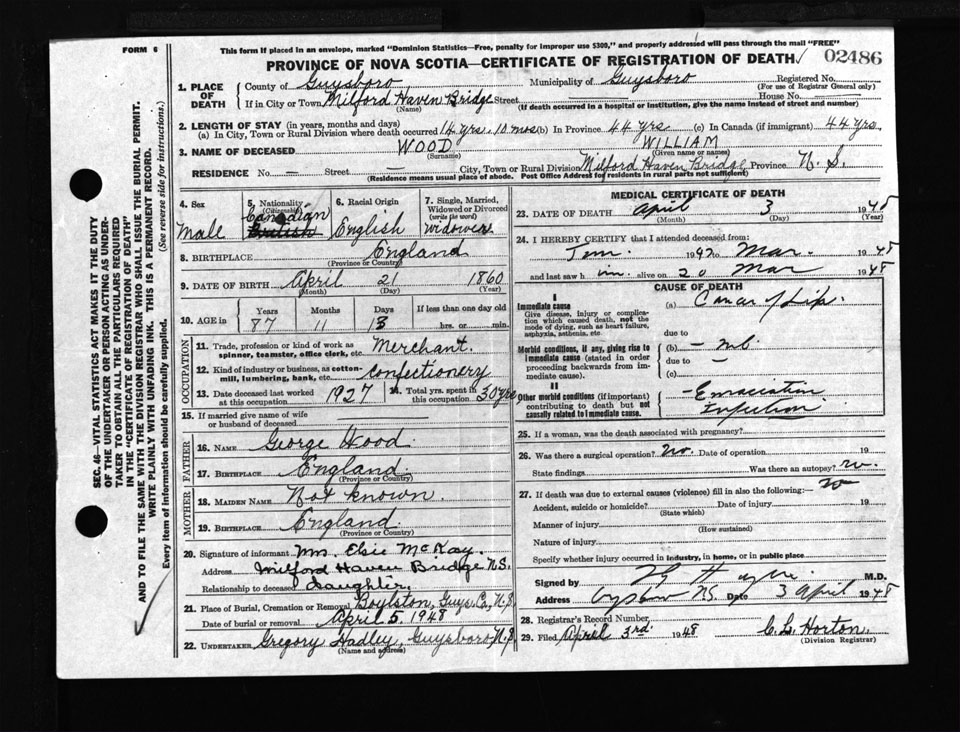 FORM 6
This form if placed in an envelope, marked "Dominion Statistics—Free, penalty for improper use $300," and properly addressed will pass through the mail "FREE"
PROVINCE OF NOVA SCOTIA—CERTIFICATE OF REGISTRATION OF DEATH
02486
1. PLACE OF DEATH
County of Guysboro Municipality of Guysboro Registered No.
(For use of Registrar General only)
If in City or Town Milford Haven Bridge Street House No. —
(Name) (If death occurred in a hospital or institution, give the name instead of street and number)
2. LENGTH OF STAY (in years, months and days)
(a) In City, Town or Rural Division where death occurred 14 yrs. 10 mos (b) In Province 44 yrs (c) In Canada (if immigrant) 44 yrs.
3. NAME OF DECEASED WOOD WILLIAM
(Surname) (Given name or names)
RESIDENCE No. — Street — City, Town or Rural Division Milford Haven Bridge Province N. S.
(Residence means usual place of abode. Post Office Address for residents in rural parts not sufficient)
4. Sex Male
5. Nationality (Citizenship) Canadian British
6. Racial Origin English
7. Single, Married, Widowed or Divorced (write the word) Widower
8. BIRTHPLACE England
(Province or Country)
9. DATE OF BIRTH April 21 1860
(Month) (Day) (Year)
10. AGE in Years Months Days If less than one day old
87 11 13 hrs. or min.
OCCUPATION
11. Trade, profession or kind of work as spinner, teamster, office clerk, etc. Merchant.
12. Kind of industry or business, as cotton-mill, lumbering, bank, etc. Confectionery
13. Date deceased last worked at this occupation 1927
14. Total yrs. spent in this occupation 30 yrs
15. If married give name of wife or husband of deceased
FATHER
16. NAME George Wood
17. BIRTHPLACE England.
(Province or Country)
MOTHER
18. MAIDEN NAME Not known.
19. BIRTHPLACE England
(Province or Country)
20. Signature of informant Mrs. Elsie McKay.
Address Milford Haven Bridge N.S.
Relationship to deceased daughter.
21. Place of Burial, Cremation or Removal Boylston, Guys. Co., N.S.
Date of burial or removal April 5, 1948
22. UNDERTAKER Gregory Hadley, Guysboro, N.S.
(Name and address)
MEDICAL CERTIFICATE OF DEATH
23. DATE OF DEATH April 3 1948
(Month) (Day) (Year)
24. I HEREBY CERTIFY that I attended deceased from
19 to Mar. 1948
and last saw him alive on 20 Mar 1948
CAUSE OF DEATH
I
Immediate cause (a) Cancer of Lip.
Give disease, injury or complication which caused death, not the mode of dying, such as heart failure, asphyxia, asthenia, etc.
due to
Morbid conditions, if any, giving rise to immediate cause (stated in order proceeding backwards from immediate cause). (b) —
due to —
(c)
II
Other morbid conditions (if important) contributing to death but not causally related to immediate cause.
Emaciation
Infection
25. If a woman, was the death associated with pregnancy?
26. Was there a surgical operation? No. Date of operation 19
State findings Was there an autopsy? no.
27. If death was due to external causes (violence) fill in also the following:— no
Accident, suicide or homicide? Date of injury 19
(State which)
Manner of injury
(How sustained)
Nature of injury
Specify whether injury occurred in industry, in home, or in public place
Signed by M.D.
Address N.S. Date 3 April 1948
28. Registrar's Record Number
29. Filed April 3rd 1948 C. L. Horton.
(Division Registrar)
SEC. 46—VITAL STATISTICS ACT MAKES IT THE DUTY
OF THE UNDERTAKER OR PERSON ACTING AS UNDER-
TAKER TO OBTAIN ALL THE PARTICULARS REQUIRED
IN THE "CERTIFICATE OF REGISTRATION OF DEATH"
AND TO FILE THE SAME WITH THE DIVISION REGISTRAR WHO SHALL ISSUE THE BURIAL PERMIT.
WRITE PLAINLY WITH UNFADING INK. THIS IS A PERMANENT RECORD.
Every item of information should be carefully supplied. (See reverse side for instructions.)